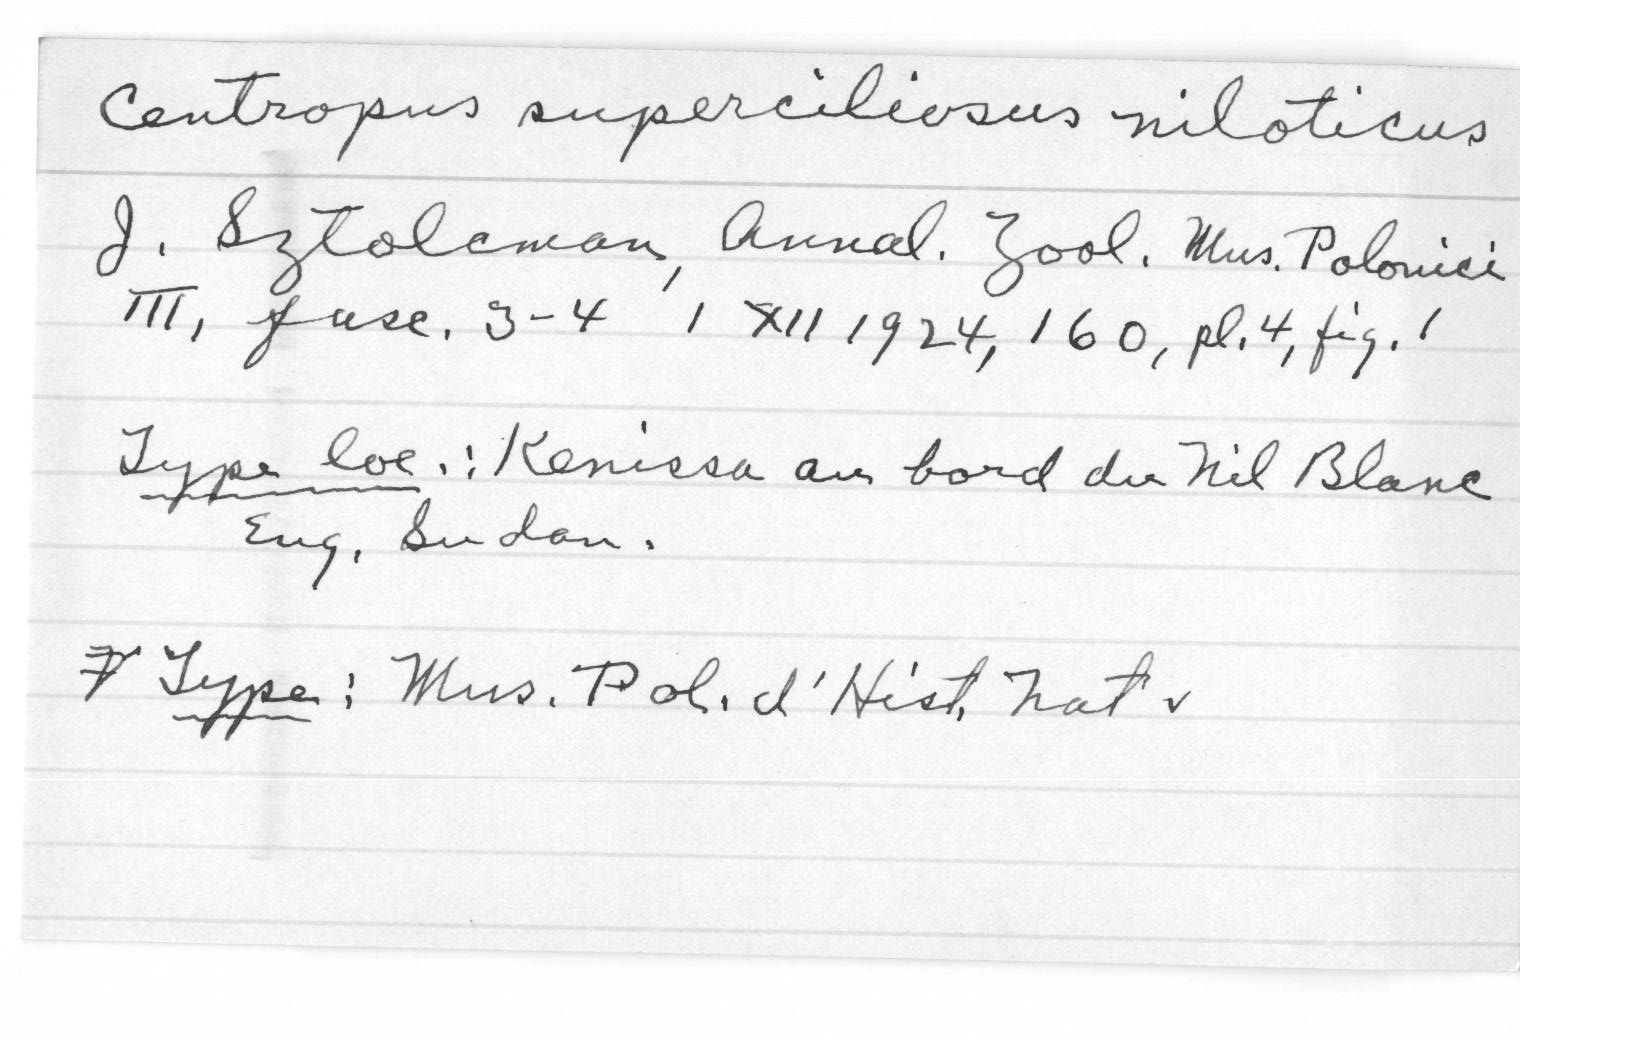 Centropus superciliosus niloticus
J. Sztolcman, Annal. Zool. Mus. Polonici
III, fasc. 3-4 1 XII 1924, 160, pl. 4, fig. 1
Type loc.: Kenissa au bord du Nil Blanc
Eng. Sudan.
Type: Mus. Pol. d'Hist. Nat